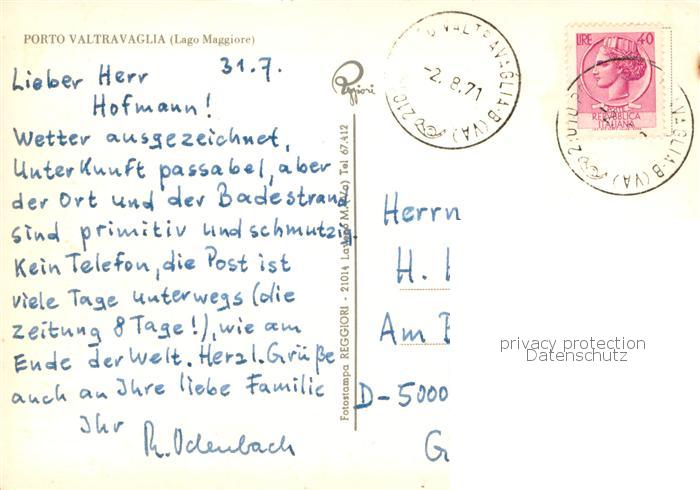 PORTO VALTRAVAGLIA (Lago Maggiore)
31.7.
Lieber Herr
Hofmann!
Wetter ausgezeichnet,
Unterkunft passabel, aber
der Ort und der Badestrand
sind primitiv und schmutzig.
Kein Telefon, die Post ist
viele Tage unterwegs (die
Zeitung 8 Tage!), wie am
Ende der Welt. Herzl. Grüße
auch an Ihre liebe Familie
Ihr
Odenbach
Reggiori
Fotostampa REGGIORI - 21014 Laveno M. (Va) Tel 67.412
VALTRAVAGLIA-B (VA)
-2.8.71
LIRE 40
REPUBBLICA
ITALIANA
AGLIA-B (VA) 21010
Herrn
H.
Am
D-5000
G
privacy protection
Datenschutz